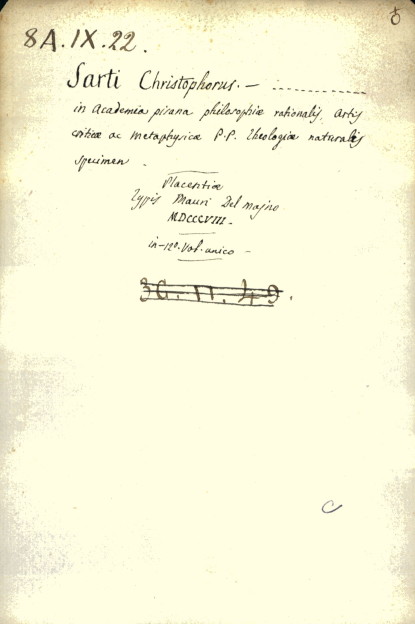 8A.IX.22.
Sarti Christophorus. —
in Academia pisana philosophiæ rationalis, Artis
criticæ ac Metaphysicæ P.P. Theologiæ naturalis
specimen.
Placentiæ
Typis Mauri Del majno
MDCCCVIII.
in-12º. Vol. unico —
36. 11. 49.
C